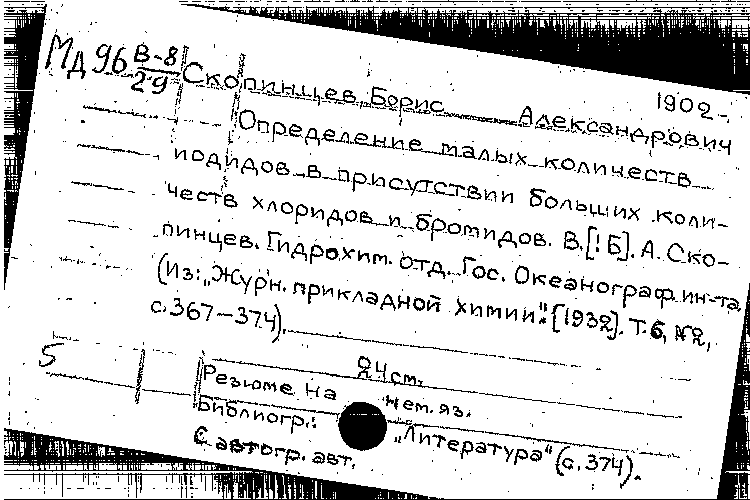 1902-
Мд 96 В-8/29 Скопинцев, Борис Александрович
Определение малых количеств
иодидов в присутствии больших коли-
честв хлоридов и бромидов. В.[!Б]. А. Ско-
пинцев. Гидрохим. отд. Гос. Океанограф. ин-та.
(Из: „Журн. прикладной химии". [1932]. Т. 6, № 2,
с. 367-374).
24 см.
5
Резюме на нем. яз.
Библиогр.: „Литература" (с. 374).
С автогр. авт.